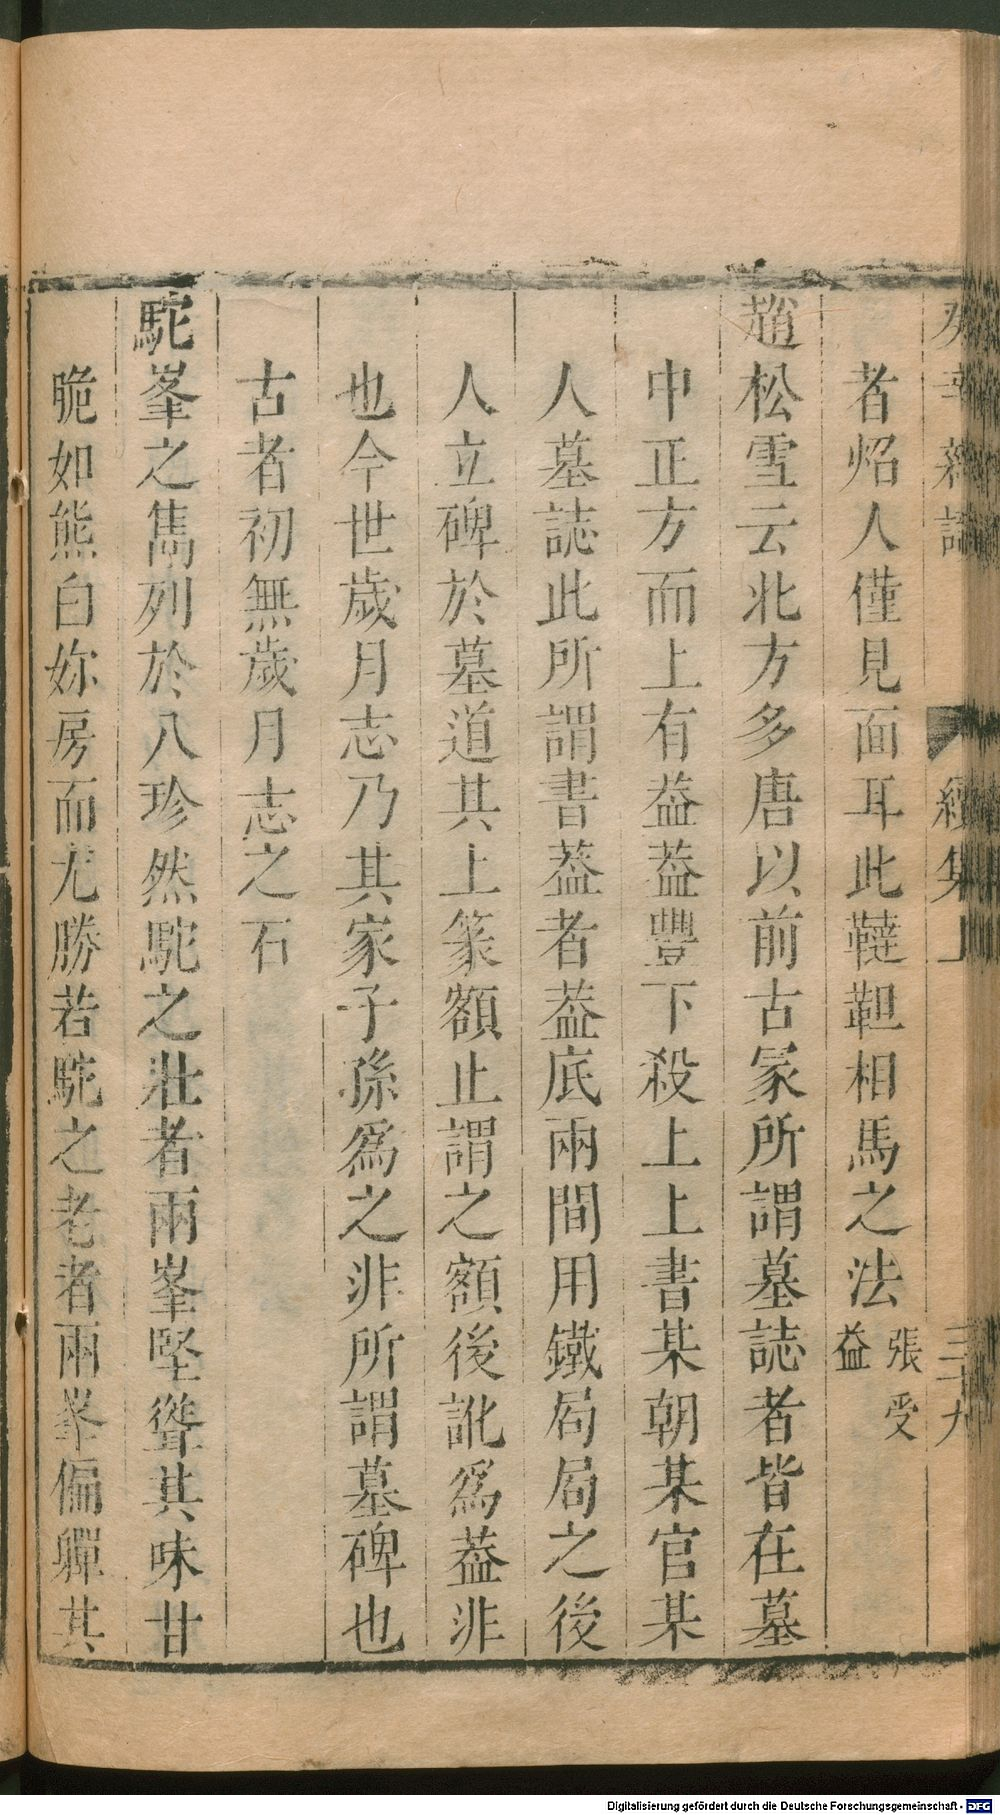 癸辛雜識 續集上 三十九
者焰人僅見面耳此韃靼相馬之法張受益
趙松雪云北方多唐以前古冢所謂墓誌者皆在墓
中正方而上有葢葢豐下殺上上書某朝某官某
人墓誌此所謂書葢者葢底兩間用鐵局局之後
人立碑於墓道其上篆額止謂之額後訛爲葢非
也今世歲月志乃其家子孫爲之非所謂墓碑也
古者初無歲月志之石
駝峯之雋列於八珍然駝之壯者兩峯堅聳其味甘
脆如熊白妳房而尤勝若駝之老者兩峯偏軃其
Digitalisierung gefördert durch die Deutsche Forschungsgemeinschaft - DFG